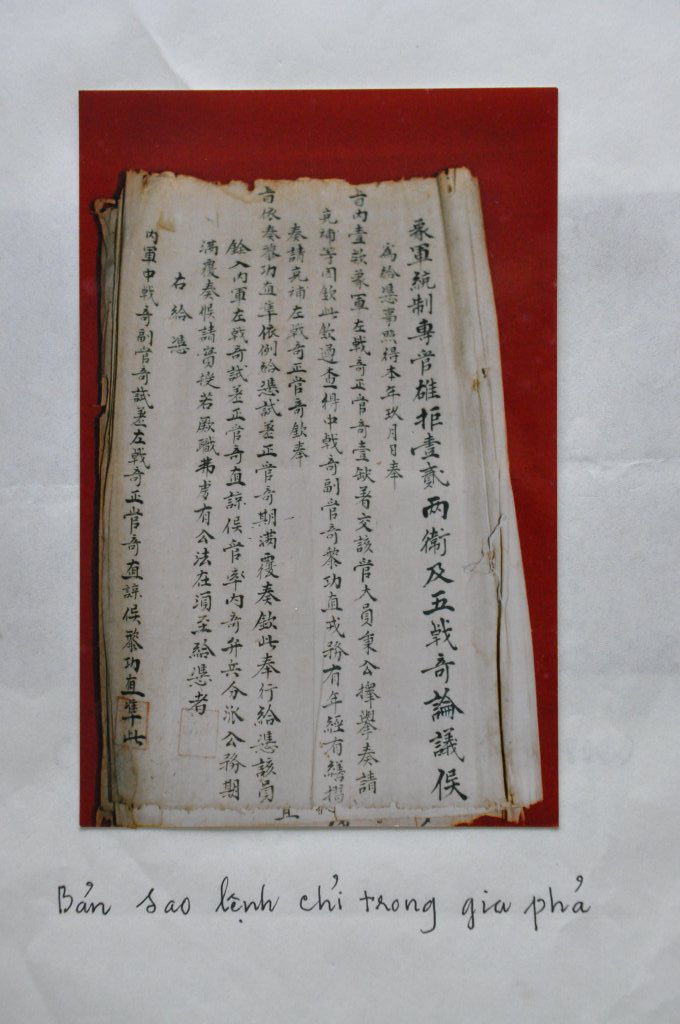 象軍統制專管雄拒壹貳兩衛及五戟奇論議侯
為給憑事照得本年玖月日奉
旨內壹款象軍左戟奇正管奇壹缺著交該管大員秉公擇舉奏請
充補等因欽此欽遵查得中戟奇副管奇黎功直戎務有年經有繕揭
奏請充補左戟奇正管奇欽奉
旨依奏黎功直準依例給憑試差正管奇期滿覆奏欽此奉行給憑該員
銓入內軍左戟奇試差正管奇直諒侯管率內奇弁兵分派公務期
滿覆奏候請實授若厥職弗虔有公法在須至給憑者
右給憑
內軍中戟奇副管奇試差左戟奇正管奇直諒侯黎功直準此
Bản sao lệnh chỉ trong gia phả